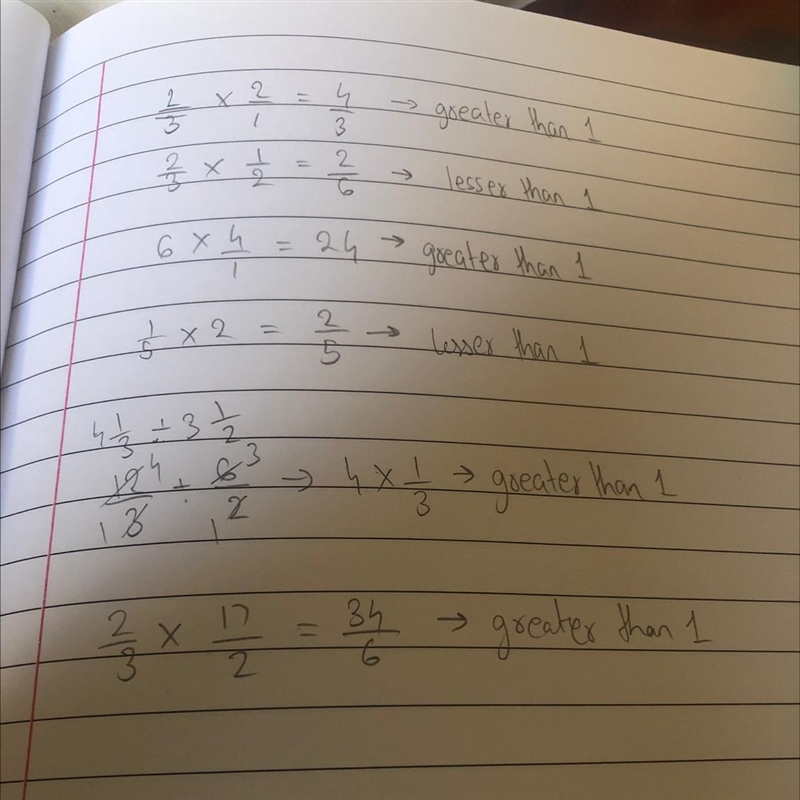 2/3 × 2/1 = 4/3 → greater than 1
2/3 × 1/2 = 2/6 → lesser than 1
6 × 4/1 = 24 → greater than 1
1/5 × 2 = 2/5 → lesser than 1
4 1/3 ÷ 3 1/2
12/3 4 1 ÷ 6/2 3 1 → 4 × 1/3 → greater than 1
2/3 × 17/2 = 34/6 → greater than 1